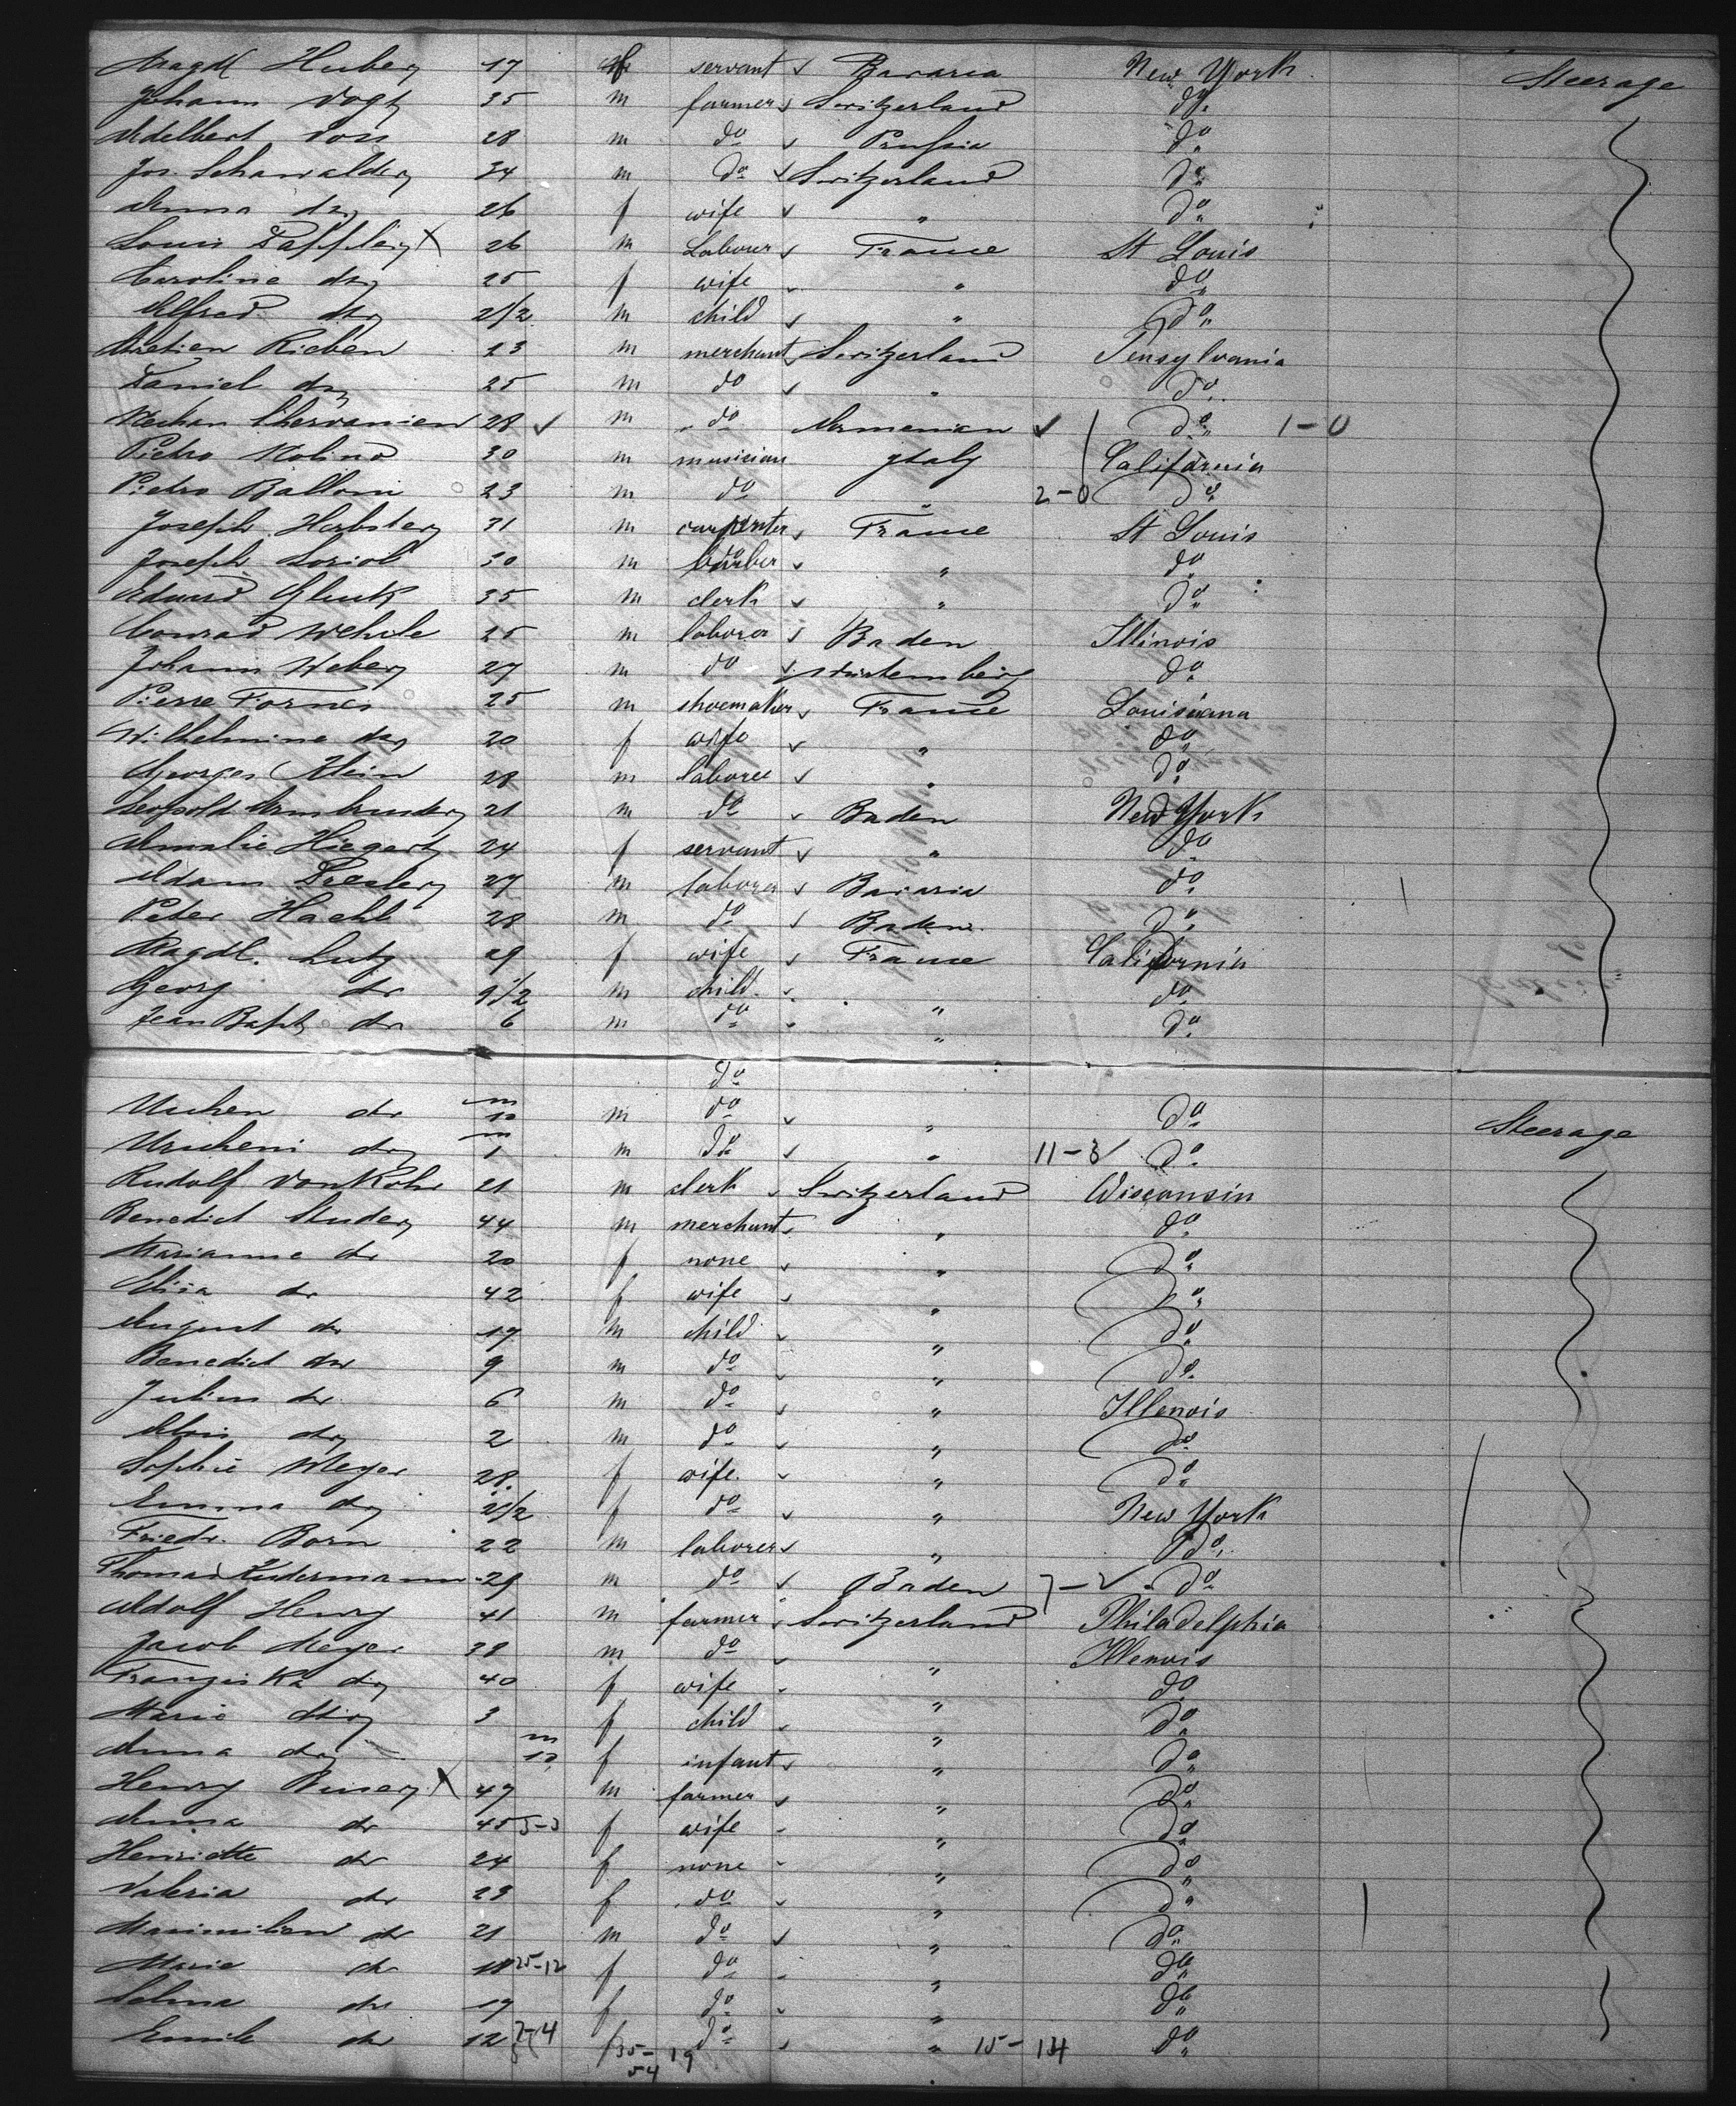 Magdl Huber 17 f servant Bavaria New York Steerage
Johann Vogt 35 m farmer Switzerland do
Adelbert Voss 28 m do Prussia do
Jos. Schawalder 34 m do Switzerland do
Anna do 26 f wife " do
Louis X 26 m Labour France St Louis
Caroline do 25 f wife " do
Alfred do 2 1/2 m child " do
Rieben 23 m merchant Switzerland Pensylvania
Daniel do 25 m do " do
28 m do Armenian do 1-0
Pietro Molino 30 m musician Italy California
Pietro Balloni 23 m do " 2-0 do
Joseph Herbster 31 m carpenter France St Louis
Joseph Loriol 30 m barber " do
Eduard Gluck 35 m clerk " do
Conrad Wehrle 25 m laborer Baden Illinois
Johann Weber 27 m do Würtemberg do
Pierre Fornes 25 m shoemaker France Louisiana
Wilhelmine do 20 f wife " do
Georges Klein 28 m laborer " do
Leopold Armbruster 21 m do Baden New York
Amalie Hiegert 24 f servant " do
Adam 27 m laborer Bavaria do
Peter Haehl 28 m do Baden do
Magdl. Lutz 29 f wife France California
Georg do 9 1/2 m child " do
Jean Bapt do 6 m do " do
do
do m 10 m do " do Steerage
do m 1 m do " 11-8 do
Rudolf von Rohr 21 m clerk Switzerland Wisconsin
Benedict Studer 44 m merchant " do
Marianne do 20 f none " do
Elisa do 42 f wife " do
August do 17 m child " do
Benedict do 9 m do " do
Julius do 6 m do " Illenois
Alois do 2 m do " do
Sophie Meyer 28. f wife " do
Emma do 2 1/2 f do " New York
Friedr. Born 22 m laborer " do
Thomas Kudermann 29 m do Baden 7-2 do
Adolf Henry 41 m farmer Switzerland Philadelphia
Jacob Meyer 38 m do " Illenois
Franziska do 40 f wife " do
Marie do 3 f child " do
Anna do m 10 f infant " do
Henry X 47 m farmer " do
Anna do 45 5-3 f wife " do
Henriette do 24 f none " do
Valeria do 23 f do " do
Maximilien do 21 m do " do
Marie do 18 25-12 f do " do
Selma do 17 f do " do
Emile do 12 2-4 f do " 15-14 do
35-19
54